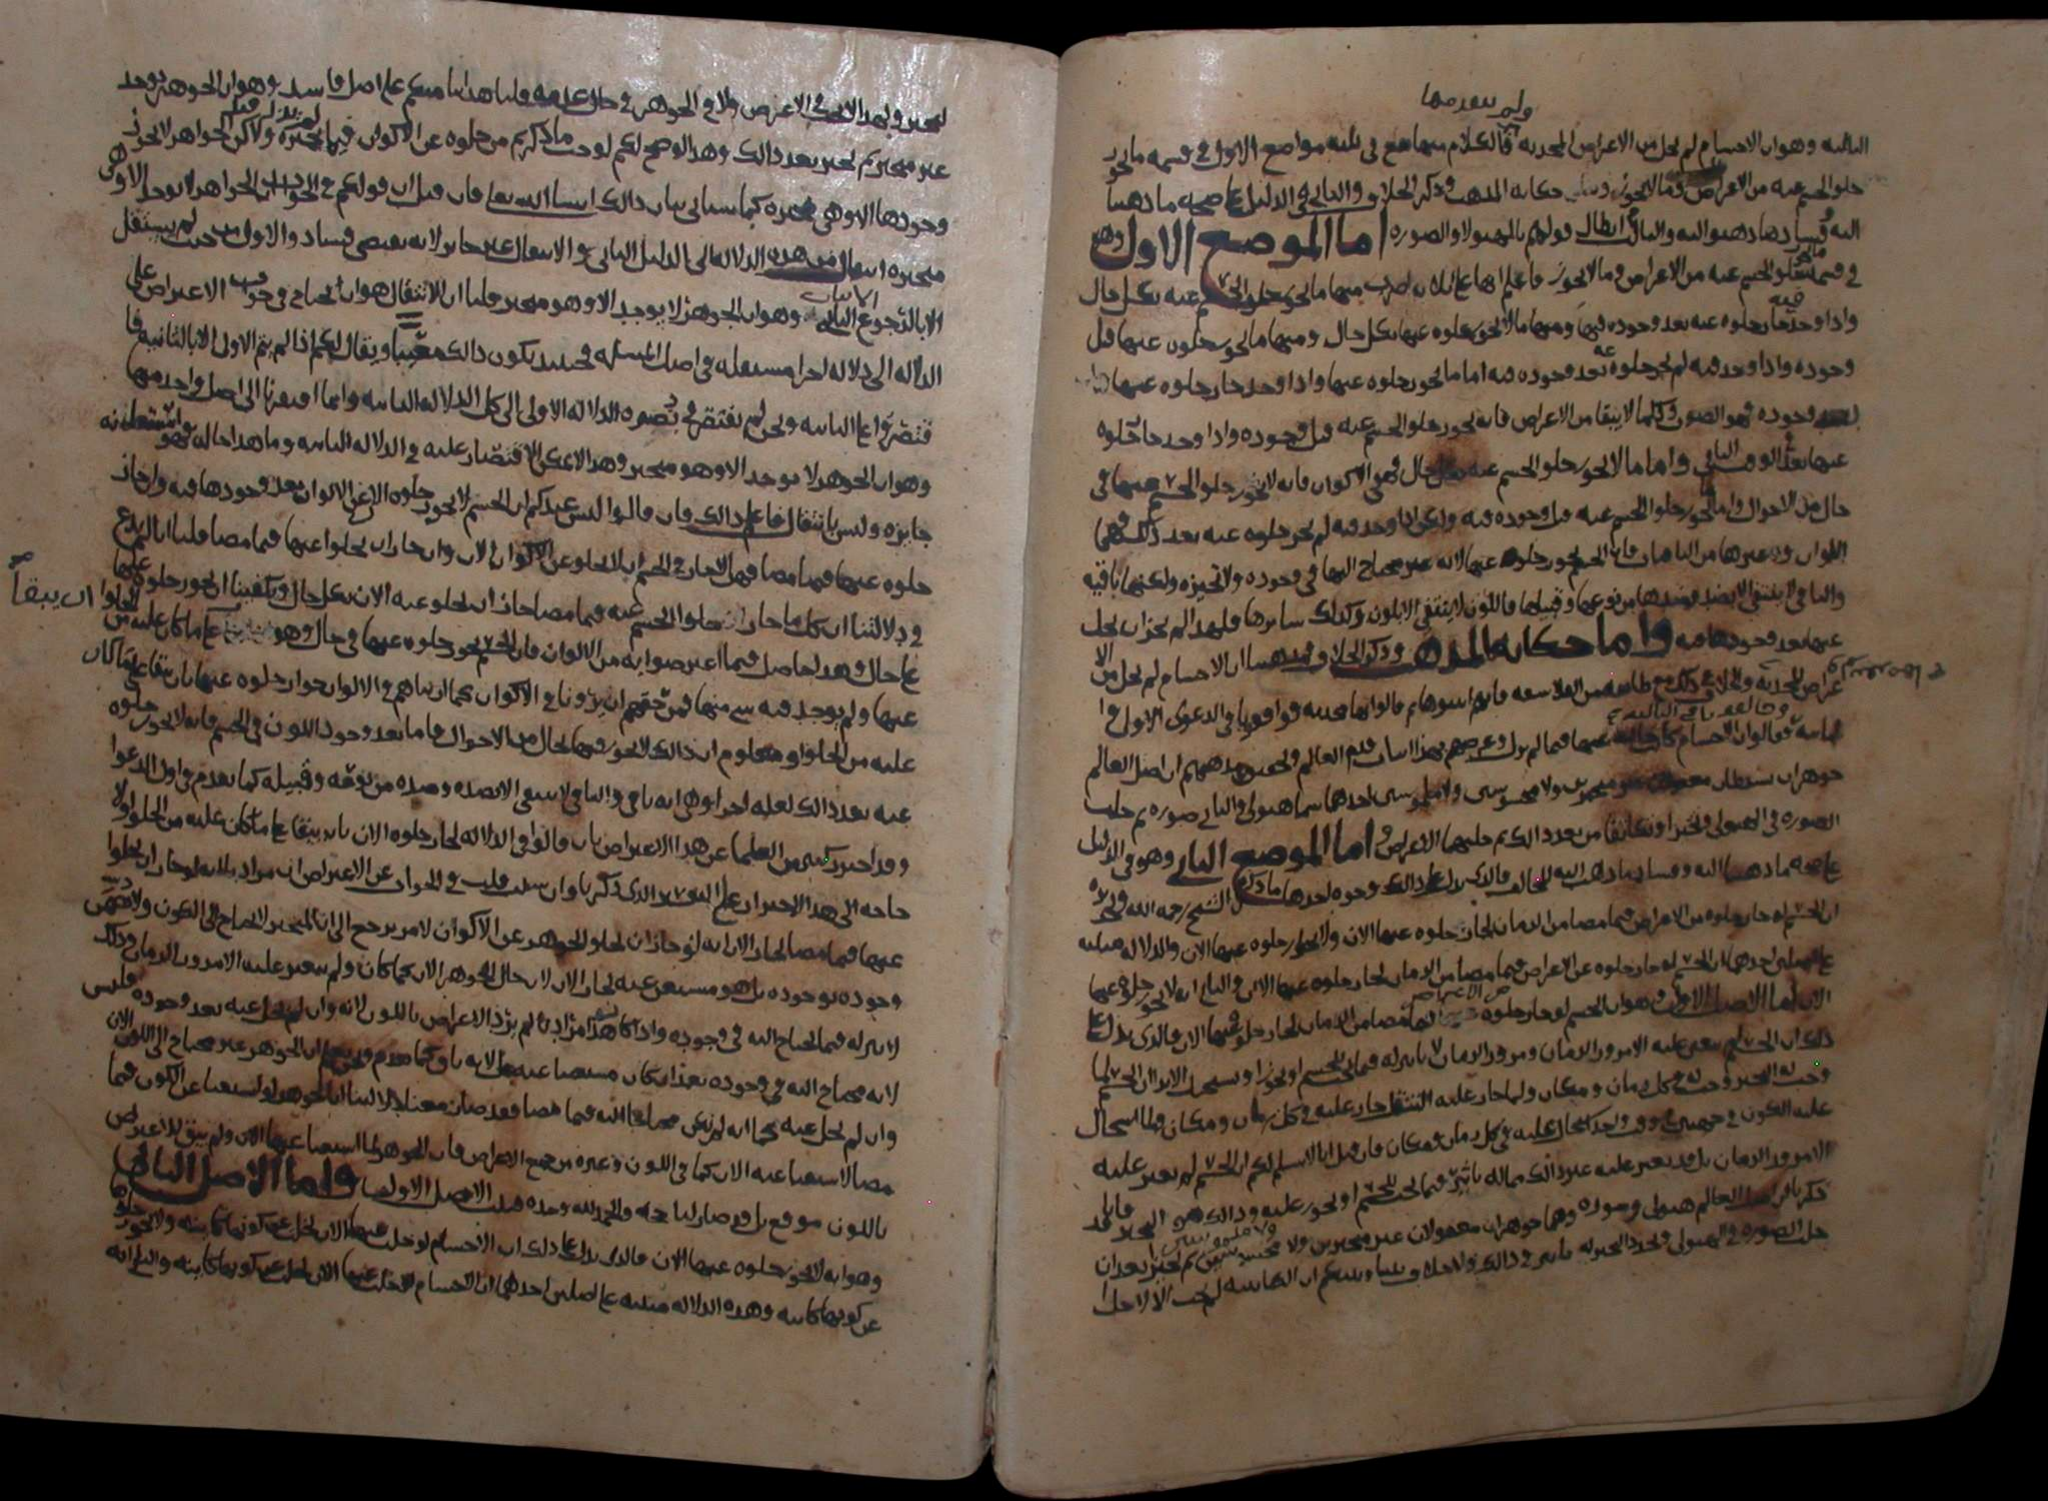 ولم يتقدمها
الثالثة وهو ان الاجسام لم تخل من الاعراض المحدثة فالكلام منها يقع في ثلثة مواضع الاول في قسمة ما يجوز
خلو الجسم عنه من الاعراض وما لا يجوز حكاية المذهب وذكر الخلاف والثاني في الدليل على صحة ما ذهبنا
اليه وفساد ما ذهبوا اليه والثالث في ابطال قولهم بالهيولا والصورة اما الموضع الاول وهو
في قسمة ما يجوز خلو الجسم عنه من الاعراض وما لا يجوز فاعلم انها على ثلاثة اضرب منها ما يجوز خلو الجسم عنه بكل حال
واذا وجد فيه جاز خلوه عنه بعد وجوده فيها ومنها ما لا يجوز خلوه عنها بكل حال ومنها ما يجوز خلوه عنها قبل
وجوده واذا وجد فيه لم يجز خلوه عنه بعد وجوده فيه اما ما يجوز خلوه عنها واذا وجد جاز خلوه عنها
وجوده فهو الصوت وكلما لا يبقا من الاعراض فانه يجوز خلو الجسم عنه قبل وجوده واذا وجد جاز خلوه
عنها بعد الوقت الثاني واما ما لا يجوز خلو الجسم عنه بكل حال فهي الاكوان فانه لا يجوز خلو الجسم عنها في
حال من الاحوال واما ما يجوز خلو الجسم عنه قبل وجوده فيه ولكن اذا وجد فيه لم يجز خلوه عنه بعد ذلك فهما
اللوان وغيرها من الباقيات فان الجسم يجوز خلوه عنها لانه غير محتاج اليها في وجوده ولا تحيزه ولكنها باقية
والباقي لا ينتفي الا بضد وضدها من نوعها وقبيلها فاللون لا ينتفي الا بلون وكذلك سائرها فلهذا لم يجز ان يخل
عنها بعد وجودها فيه واما حكاية المذهب وذكر الخلاف فمذهبنا ان الاجسام لم تخل من الا
عراض المحدثة والخلاف في ذلك مع طائفة من الفلاسفة فانهم اثبتوها ثم قالوا انها محدثة فوافقونا في الدعوى الاولى و
الثانية فقالوا ان الاجسام كانت خالية عنها فيما لم يزل وغرضهم بهذا اثبات قدم العالم وتحقيق مذهبهم ان اصل العالم
جوهران بسيطان معقولان غير متحيزين ولا محسوسين ولا ملموسين احدهما سما هيولى والثاني صورة ثم حلت
الصورة في الهيولى فتحيزا وتكاثفا من بعد ذلك ثم حلتهما الاعراض اما الموضع الثاني وهو في الدليل
على صحة ما ذهبنا اليه وفساد ما ذهب اليه المخالف فالذي يدل على ذلك وجوه احدها ما ذكره الشيخ رحمه الله وتحريره
ان الجسم لو جاز خلوه من الاعراض فيما مضا من الزمان لجاز خلوه عنها الان ولا يجوز خلوه عنها الان والدلالة مبنية
على اصلين احدهما ان الجسم لو جاز خلوه عن الاعراض فيما مضا من الزمان لجاز خلوه عنها الان والثاني انه لا يجوز خلوه عنها
الان اما الاصل الاول وهو ان الجسم لو جاز خلوه عن الاعراض فيما مضا من الزمان لجاز خلوه عنها الان فالذي يدل على
ذلك ان الجسم لم يتغير عليه الا مرور الزمان ومرور الزمان لا تاثير له فيما يجب للجسم او يجوز او يستحيل الا ترا ان الجسم لما
وجب له التحيز وجب له في كل زمان ومكان ولما جاز عليه التنقل جاز عليه في كل زمان ومكان ولما استحال
عليه الكون في جهتين في وقت واحد استحال عليه في كل زمان ومكان فان قيل انا لا نسلم لكم ان الجسم لم يتغير عليه
الا مرور الزمان بل قد يتغير عليه غير ذلك مما له تاثير فيما يجب للجسم او يجوز عليه وذلك هو التحيز فانا قد
ذكرنا ان اصل العالم هيولى وصورة وهما جوهران معقولان غير متحيزين ولا محسوسين ولا ملموسين ثم تحيزا بعد ان
حلت الصورة في الهيولى وتجدد التحيز له تاثير في ذلك
لتحيز ولهذا لا يجب في الاعراض ولا في الجوهر في حال عدمه قلنا هذا بنا منكم على اصل فاسد وهو ان الجوهر يوجد
غير متحيز ثم تحيز بعد ذلك وهذا لو صح لكم لوجب ما ذكرتم من خلوه عن الاكوان فيما لم يزل قبل تحيزه ولكن الجواهر لا يجوز
وجودها الا وهي متحيزة كما سياتي بيان ذلك ان شا الله تعالى فان قيل ان قولكم في الجواب ان الجواهر لا توجد الا وهي
متحيزة انتقال من هذه الدلالة الى الدليل الثاني والانتقال غير جائز لانه يقتضي فساد الاول من حيث لم يستقل
الا بالرجوع الى الثاني وهو ان الجوهر لا يوجد الا وهو متحيز قلنا ان الانتقال هو ان نحتاج في جواب الاعتراض على
الدلالة الى دلالة اخرا مستقلة في اصل المسئلة فحينئذ يكون ذلك معيبا ويقال لكم اذا لم يتم الاول الا بالثانية فا
قتصروا على الثانية ونحن لم نفتقر في نصرة الدلالة الاولى الى كل الدلالة الثانية وانما افتقرنا الى اصل واحد منها
وهو ان الجوهر لا يوجد الا وهو متحيز وهذا لا يمكن الاقتصار عليه في الدلالة الثانية وما هذا حاله فهو استعانة
جائزة وليس بانتقال فاعلم ذلك فان قالوا اليس عندكم ان الجسم لا يجوز خلوه الان عن الالوان بعد وجودها فيه وان جاز
خلوه عنها فيما مضا فهلا جاز في الجسم ان لا يخلو عن الاكوان الان وان جاز ان يخلوا عنها فيما مضا قلنا انا لم ندع
في دلالتنا ان كل ما جاز خلو الجسم عنه فيما مضا جاز ان يخلو عنه الان بكل حال ويكفينا ان يجوز خلوه عنها
على حال وهذا حاصل فيما اعترضوا به من الالوان فان الجسم يجوز خلوه عنها في حال وهو ان يبقا على ما كان عليه من الخلو
عنها ولم يوجد فيه شي منها فمن حقهم ان يرونا في الاكوان كما اريناهم في الالوان جواز خلوه عنها بان يبقا على ما كان
عليه من الخلو ومعلوم ان ذلك لا يجوز فيها بحال من الاحوال فاما بعد وجود اللون في الجسم فانه لا يجوز خلوه
عنه بعد ذلك لعلة اخرا وهي انه باقي والباقي لا ينتفي الا بضده وضده من نوعه وقبيله كما تقدم في اول الدعوا
وقد احترز كثير من العلما عن هذا الاعتراض بان قالوا في الدلالة لجاز خلوه الان بان يبقا على ما كان عليه من الخلو ولا
حاجة الى هذا الاحتراز مع التحرير الذي ذكرناه وان شئت قلت في الجواب عن الاعتراض ان مرادنا بانه لو جاز ان يخلوا
عنها فيما مضا لجاز الان انه لو جاز ان يخلو الجوهر عن الاكوان لامر يرجع الى ان المتحيز لا يحتاج الى الكون ولا يتضمن
وجوده بوجوده بل هو مستغن عنه لجاز الان لان حال الجوهر الان كما كان ولم يتغير عليه الا مرور الزمان وذلك
لا تاثير له فيما يحتاج اليه في وجوده واذا كان هذا مرادنا لم يرد الاعتراض باللون لانه وان لم يخل عنه بعد وجوده فليس
لانه محتاج اليه في وجوده بعد ان كان مستغنيا عنه بل لانه باق كما تقدم ان الجوهر غير محتاج الى اللون الان
وان لم يخل عنه كما انه لم يكن محتاجا اليه فيما مضا فقد صار معنا دلالتنا ان الجوهر لو استغنا عن الكون فيما
مضا لاستغنا عنه الان كما في اللون وغيره من جميع الاعراض فان الجوهر لما استغنا عنها الان ولم يبق للاعتراض
باللون موقع بل قد صار لنا حجة والحمد لله وحده فثبت الاصل الاول واما الاصل الثاني
وهو انه لا يجوز خلوه عنها الان فالذي يدل على ذلك ان الاجسام لو خلت عنها الان لخلت عن كونها كائنة ولا يجوز خلوها
عن كونها كائنة وهذه الدلالة مبنية على اصلين احدهما ان الاجسام لو خلت عنها الان لخلت عن كونها كائنة والثاني انه